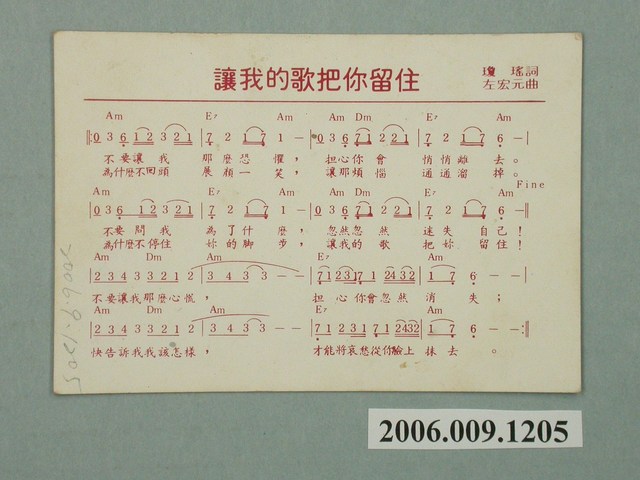 讓我的歌把你留住
瓊瑤詞
左宏元曲
Am E7 Am Am Dm E7 Am
‖: 0 3 6 1 2 3 2 1 | 7 2 1 7 1 — | 0 3 6 7 1 2 2 1 | 7 2 1 7 6 — |
不要讓我 那麼恐懼， 担心你會 悄悄離去。
為什麼不回頭 展顏一笑， 讓那煩惱 通通溜掉。
Fine
Am E7 Am Dm E7 Am
0 3 6 1 2 3 2 1 | 7 2 1 7 1 — | 0 3 6 7 1 2 2 1 | 7 2 1 7 6 — ‖
不要問我 為了什麼， 忽然忽然 迷失自己！
為什麼不停住 妳的脚步， 讓我的歌 把妳留住！
Am Dm Am E7 Am
2 3 4 3 3 2 1 2 | 3 4 3 3 — | 7 1 2 3 1 7 1 2 4 3 2 | 1 7 6 — |
不要讓我那麼心慌， 担心你會忽然消失；
Am Dm Am E7 Am
2 3 4 3 3 2 1 2 | 3 4 3 3 — — | 7 1 2 3 1 7 1 2 4 3 2 | 1 7 6 — :‖
快告訴我我該怎樣， 才能將哀愁從你臉上抹去。
2006.009.1205
2006.9.1205